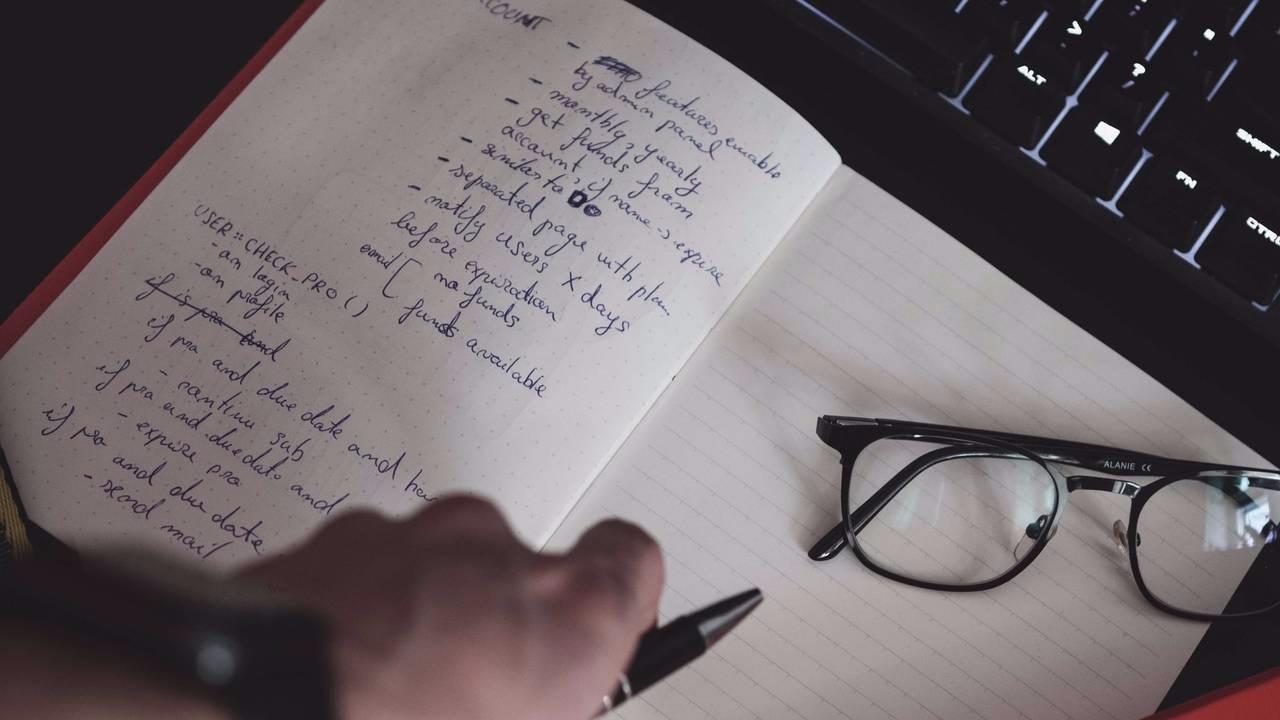 COUNT
- features enable
by admin panel
- monthly, yearly
- get funds from
account, if none -> expire
- similar to DO
- separated page with plan
- notify users X days
before expiration
email [ no funds
funds available
USER::CHECK_PRO()
- on login
- on profile
if is pro and
if pro and due date and
- continu sub
if pro and due date and
- expire pro
if pro and due date
- send mail
ALANIE CE
ALT
?
SHIFT
FN
CTRL